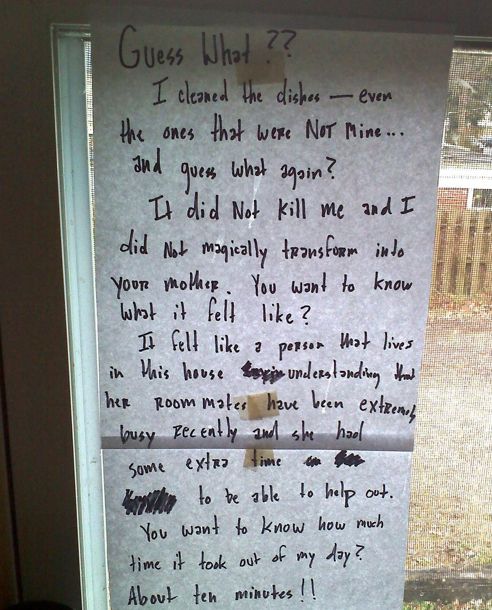 Guess What??
I cleaned the dishes — even
the ones that were Not mine...
and guess what again?
It did Not kill me and I
did Not magically transform into
your mother. You want to know
what it felt like?
It felt like a person that lives
in this house understanding that
her roommates have been extremely
busy recently and she had
some extra time
to be able to help out.
You want to know how much
time it took out of my day?
About ten minutes!!